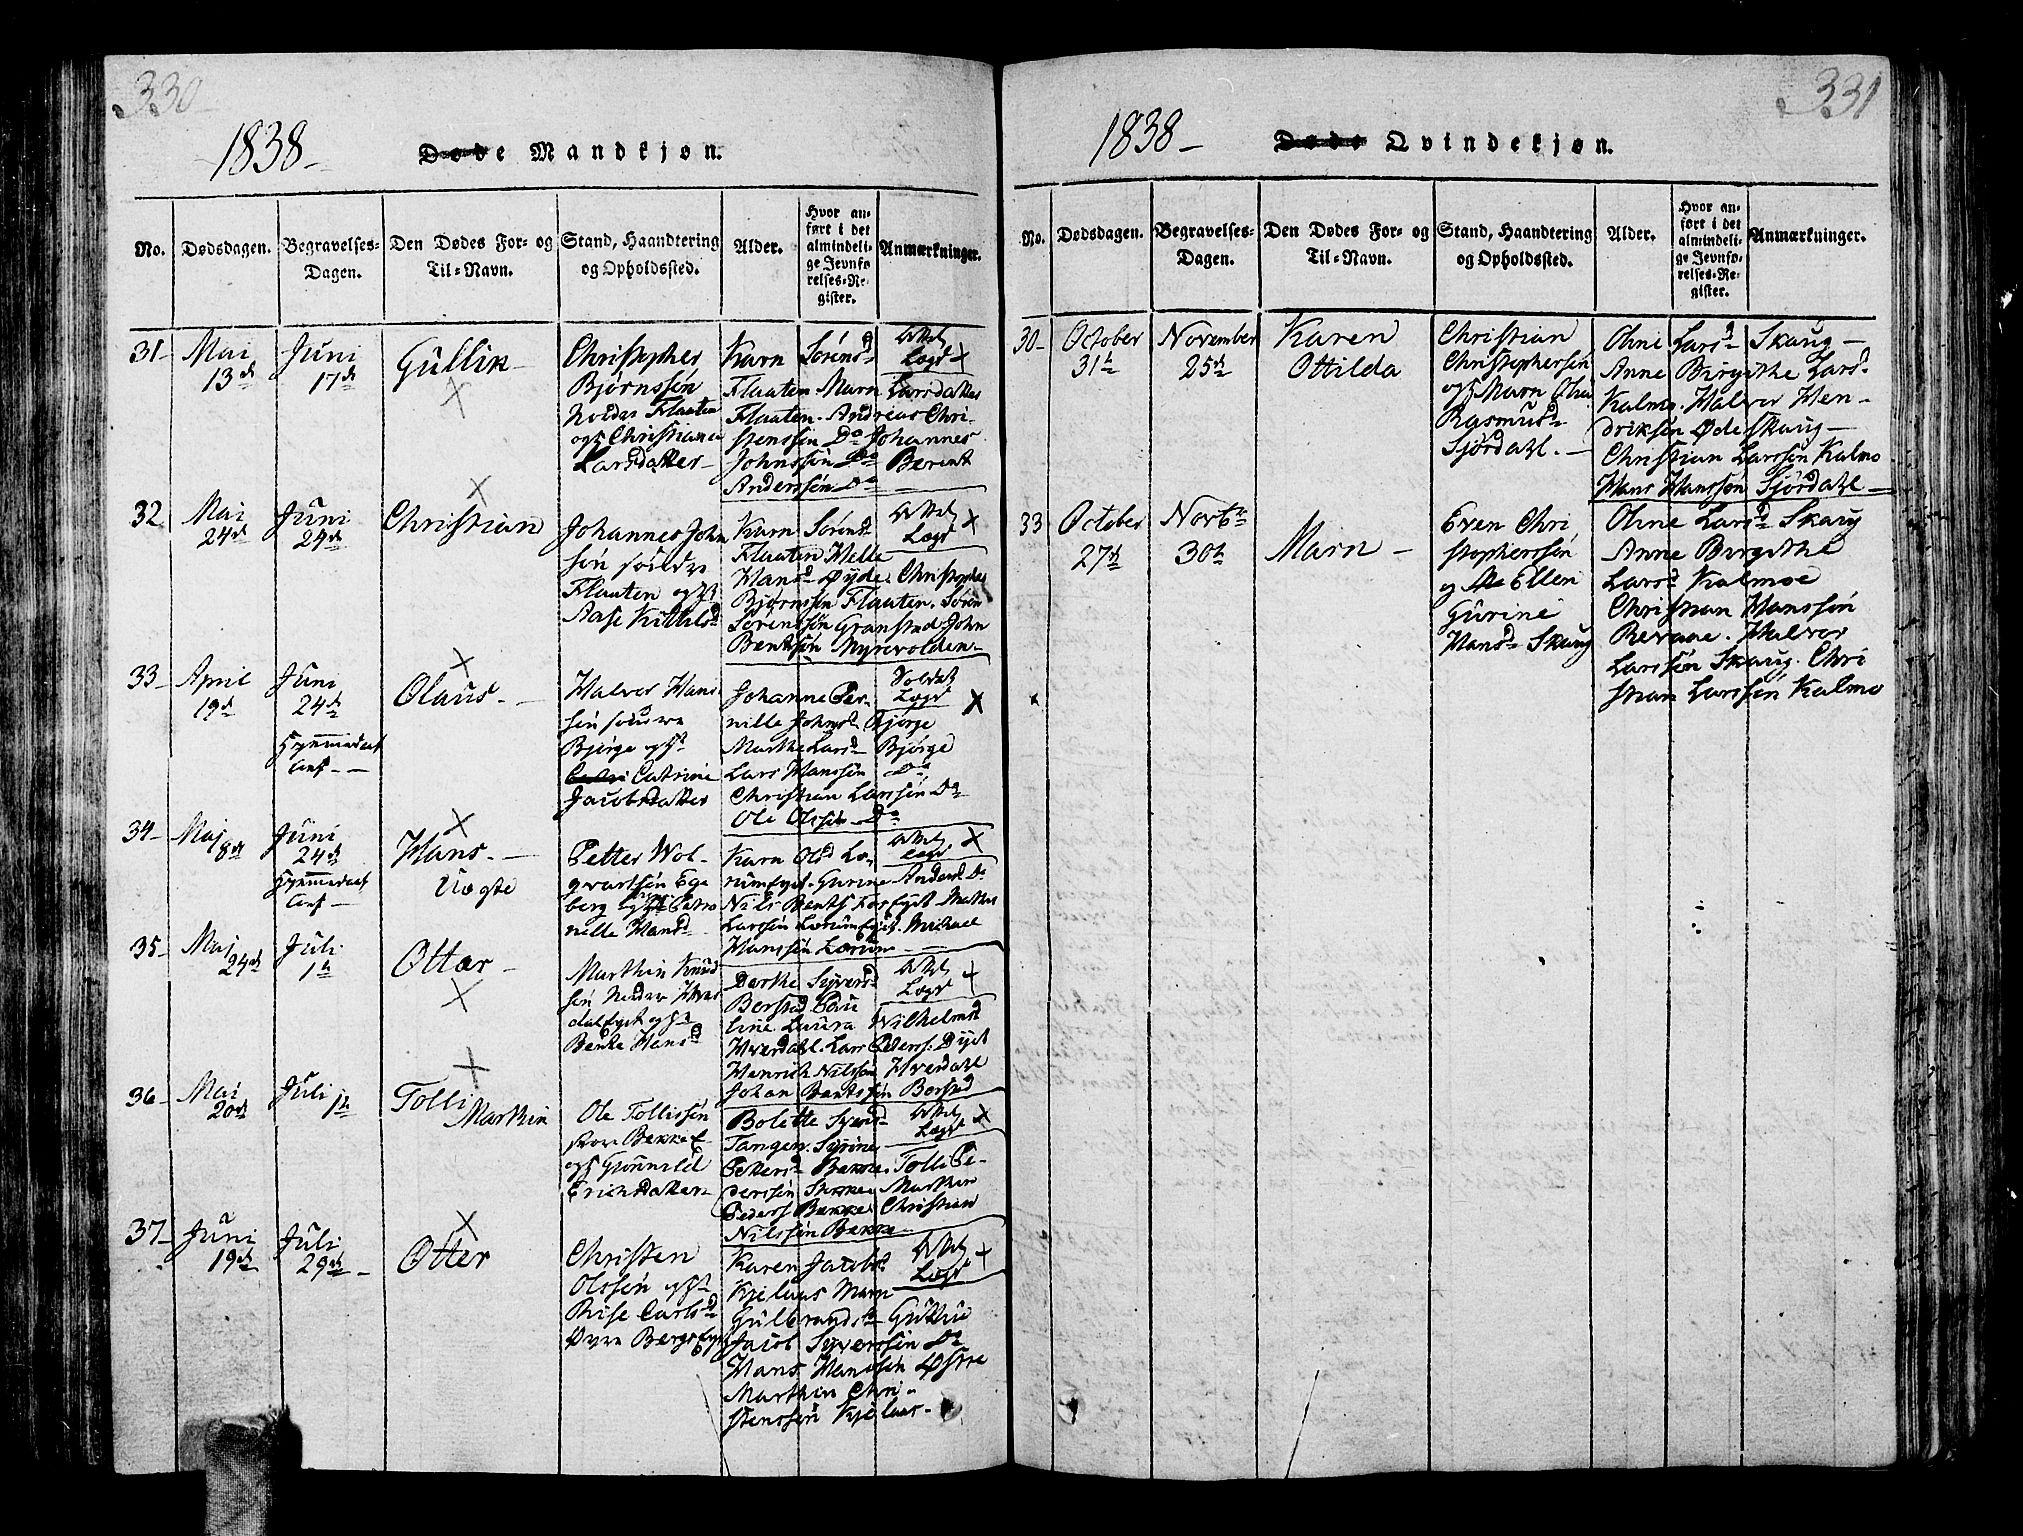 330
1838-
Døde Mandkjøn.
No.
Dødsdagen.
Begravelses-
Dagen.
Den Dødes For- og
Til-Navn.
Stand, Haandtering
og Opholdssted.
Alder.
Hvor an-
ført i det
almindeli-
ge Jevnfø-
relses-Re-
gister.
Anmærkninger.
31-
Mai
13de
Juni
17de
Gullik-
Christopher
Bjørnssøn
Flaaten
og h Christiane
Larsdatter-
Karn Sørensd
Flaaten. Marn Larsdatter
Flaaten. Andreas Chri-
stenssøn Do Johannes
Johnssøn Do Berent
Anderssøn Do
Lægd
32
Mai
24de
Juni
24de
Christian
Johannes John
søn
Flaaten og h
Aase Kittilsd
Karn Sørensd
Flaaten Helle
Hansd Øyde. Christopher
Bjørnssøn Flaaten. Søren
Sørenssøn Granstad. John
Bentssøn Myrevolden-
Lægd
33-
April
19de
Juni
24de
Olaus-
Halvor Hans
søn
Bjørge og h
Catrine
Jacobsdatter
Johanne Per-
nille Johnsd Bjørge
Marthe Larsd Bjørge
Lars Hanssøn Do
Christian Larssøn Do
Ole Olssen Do
Soldat
Lægd
34-
Mai
8de
Juni
24de
Hans-
Petter Wol-
qvartsøn Ege
berg og h Petro
nille Hansd
Karn Olsd Læ-
rumeyet. Gurine Andersd Do
Nils Bents
Larssøn Lærumeyet. Michael
Hanssøn Lærum
35-
Mai
24de
Juli
1te
Otter-
Marthin Knud
søn
daleyet og h
Bente Hansd
Dorthe Syversd
Borstad Pau
line Laura Wilhelmsd
Hverdahl. Lars Peterss.
Henrich Nilssøn Hverdahl
Johan Bentssøn Borstad
Lægd
36-
Mai
20de
Juli
1te
Tolli
Marthin
Ole Tollissøn
store Bekke
og h Gunnild
Erichsdatter-
Bolette Syversd
Tangen. Syrine
Pettersd Bekke. Tolli Pe-
derssøn Marthin
Pederss Bekke Christian
Nilssøn Bekke
Lægd
37-
Juni
19de
Juli
29de-
Otter
Christen
Olssøn og h
Rise Carlsd
Øvre Bergseyet
Karen Jacobsd
Kjelaas Marn
Gulbrandsd
Jacob Syverssøn Do
Hans Hanssøn Østre
Marthin Chri-
stenssøn Kjelaas-
Lægd
331
1838-
Døde Qvindekjøn.
No.
Dødsdagen.
Begravelses-
Dagen.
Den Dødes For- og
Til-Navn.
Stand, Haandtering
og Opholdssted.
Alder.
Hvor an-
ført i det
almindeli-
ge Jevnfø-
relses-Re-
gister.
Anmærkninger.
30-
October
31te
November
25de
Karen
Ottilda
Christian
Christophersøn
og h Marn
Rasmusd
Sjørdahl.-
Ohne Larsd Skaug-
Anne Birgithe Larsd
Kalmo. Halvor Hen-
driksøn Ødeskaug-
Christian Larssøn Kalmo
Hans Hanssøn Sjørdahl-
33
October
27de
Novbr
30te
Marn-
Even Chri
stopherssøn
og Ellen
Gurine
Hansd Skaug
Ohne Larsd Skaug
Anne Birgithe
Larsd Kalmoe
Christian Hanssøn
Revaae. Halvor
Larssøn Skaug. Chri
stian Larssøn Kalmo